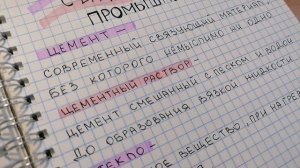 ПРОМЫШЛ
ЦЕМЕНТ –
СОВРЕМЕННЫЙ СВЯЗУЮЩИЙ МАТЕРИАЛ,
БЕЗ КОТОРОГО НЕМЫСЛИМО НИ ОДНО
ЦЕМЕНТНЫЙ РАСТВОР –
ЦЕМЕНТ СМЕШАННЫЙ С ПЕСКОМ И ВОДОЙ
ДО ОБРАЗОВАНИЯ ВЯЗКОЙ ЖИДКОСТИ
ТЕКЛО –
ОЕ ВЕЩЕСТВО, ПРИ НАГРЕВ